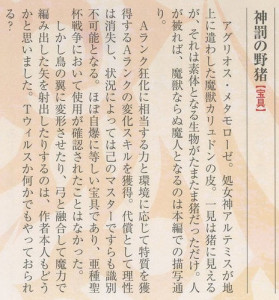 神罰の野猪【宝具】
アグリオス・メタモローゼ。処女神アルテミスが地
上に遣わした魔獣カリュドンの皮。一見は猪に見える
が、それは素体となる生物がたまたま猪だっただけ。人
が被れば、魔獣ならぬ魔人となるのは本編での描写通
り。
Aランク狂化に相当する力と環境に応じて特質を獲
得するAランクの変化スキルを獲得。代償として理性
は消失し、状況によっては己のマスターですらも識別
不可能となる。ほぼ自爆に等しい宝具であり、亜種聖
杯戦争において使用が確認されたことはなかった。
しかし鳥の翼に変形させたり、弓と融合して魔力で
編み出した矢を射出したりするのは、作者本人もどう
かと思いました。Tウィルスか何かでもやっておられ
る?